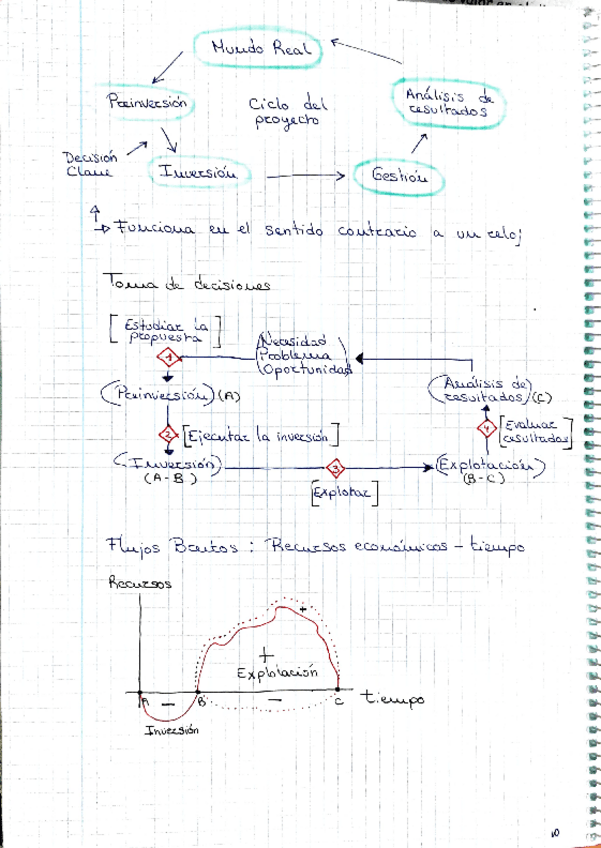 Mundo Real
Preinversión
Ciclo del
proyecto
Análisis de
resultados
Decisión
Clave
Inversión
Gestión
Funciona en el sentido contrario a un reloj
Toma de decisiones
[Estudiar la
propuesta]
1
(Necesidad
Problema
Oportunidad)
(Preinversión) (A)
(Análisis de
resultados) (C)
2
[Ejecutar la inversión]
4
[Evaluar
resultados]
(Inversión)
(A-B)
3
[Explotar]
(Explotación)
(B-C)
Flujos Brutos: Recursos económicos - tiempo
Recursos
+
+
Explotación
A
-
B
-
C
tiempo
Inversión
10